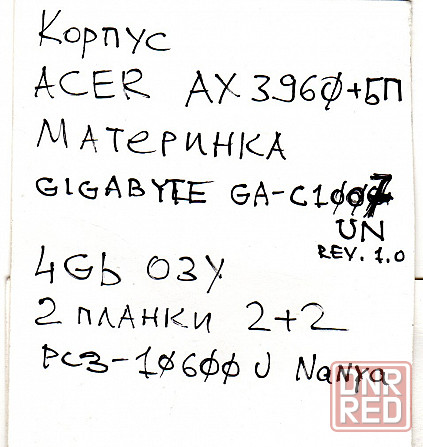 Корпус
ACER AX3960+БП
Материнка
GIGABYTE GA-C1007
UN
REV. 1.0
4Gb ОЗУ
2 планки 2+2
PC3-10600U Nanya
DNR
RED